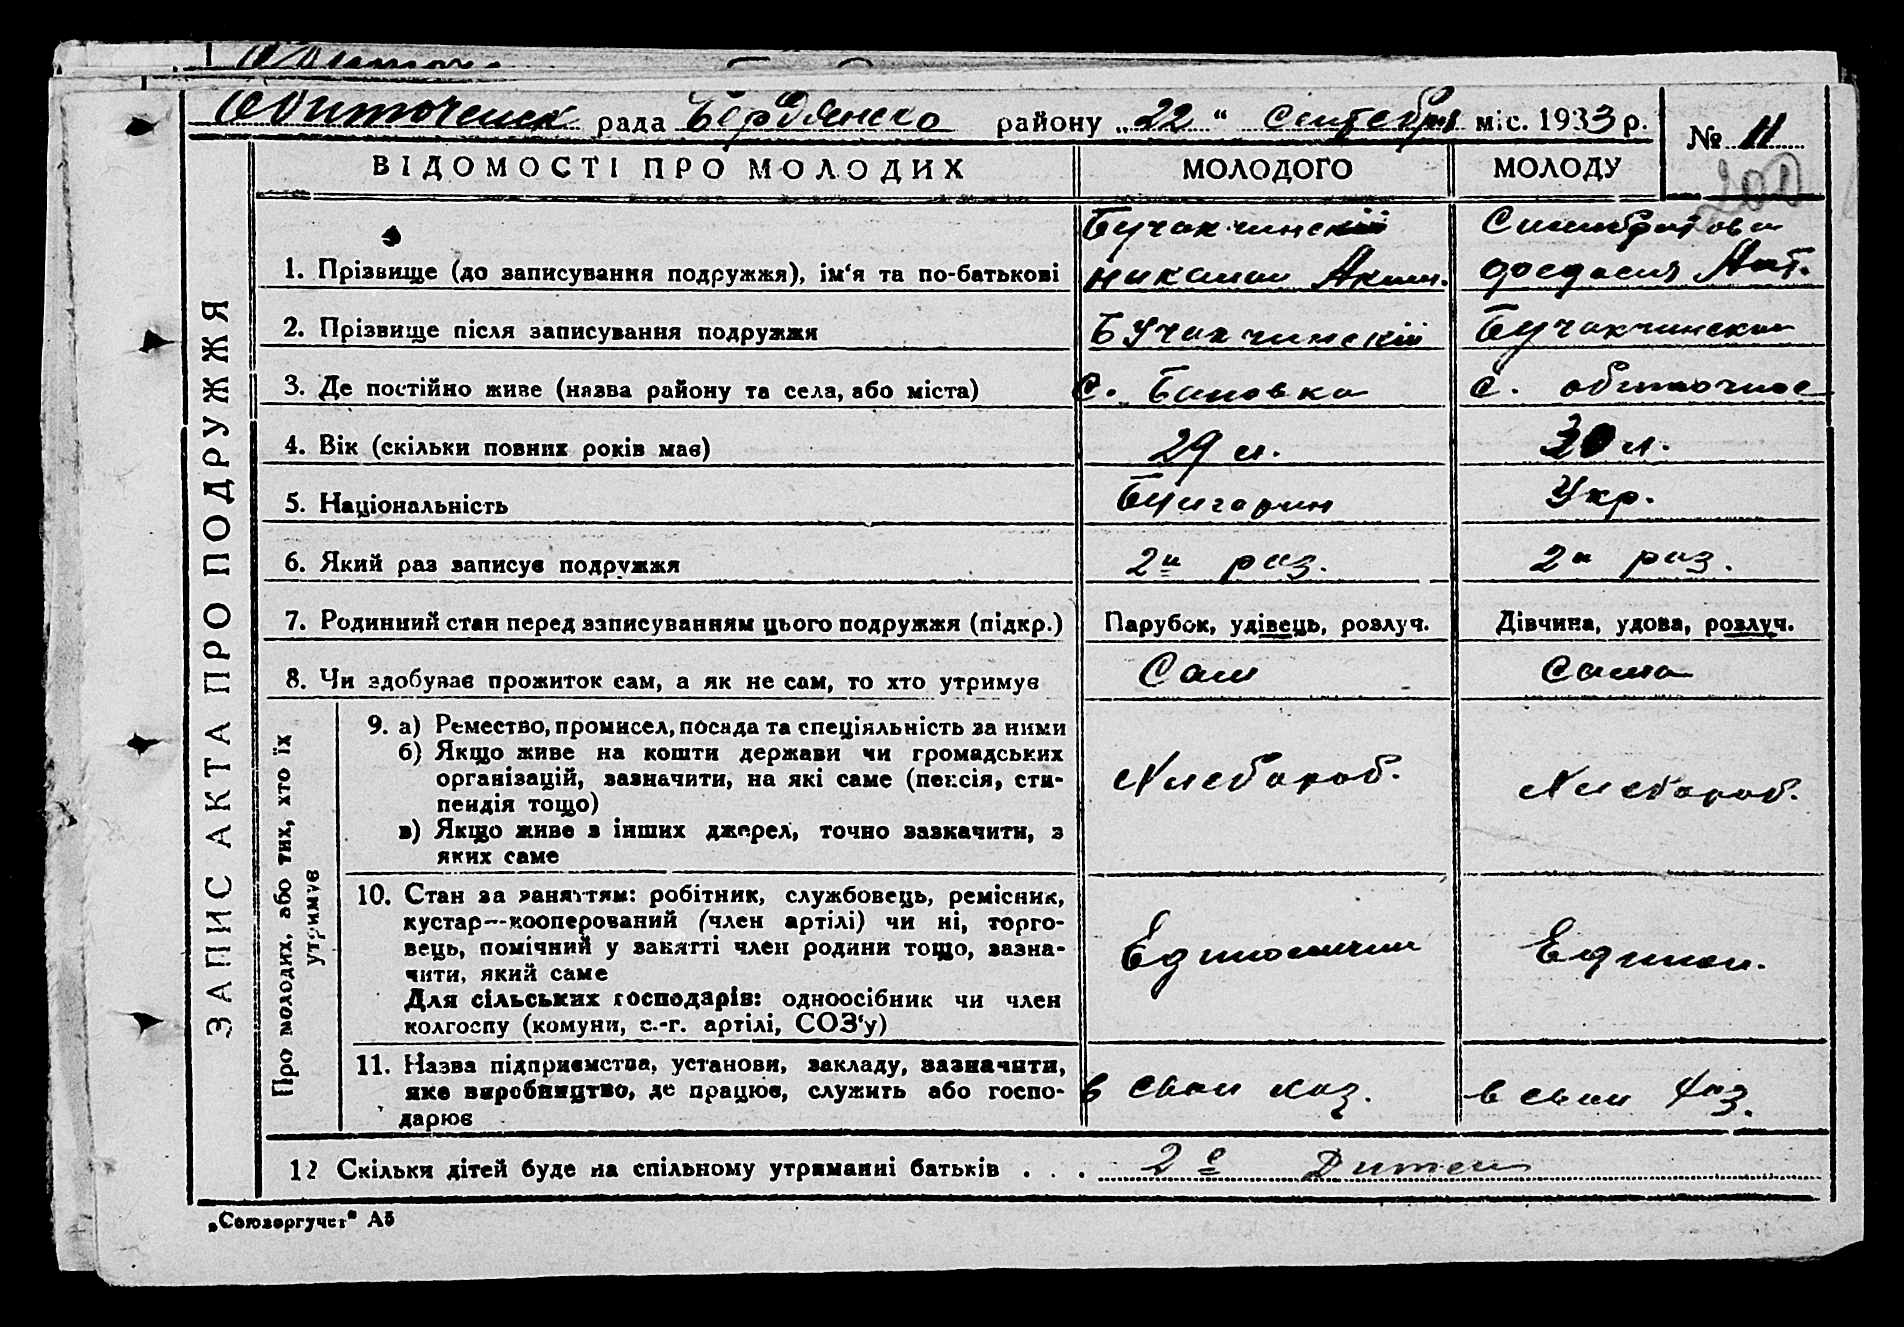 Обиточенск рада Бердянско району „22“ Сентебря міс. 1933 р.
№ 11
200
ЗАПИС АКТА ПРО ПОДРУЖЖЯ
ВІДОМОСТІ ПРО МОЛОДИХ МОЛОДОГО МОЛОДУ
Бучакчинскій
1. Прізвище (до записування подружжя), ім‘я та по-батькові Николай Аким.
2. Прізвище після записування подружжя Бучакчинскій Бучакчинская
3. Де постійно живе (назва району та села, або міста) С. Бановка с. обиточное
4. Вік (скільки повних років має) 29 л. 30 л.
5. Національність Булгарин Укр.
6. Який раз записує подружжя 2й раз. 2й раз.
7. Родинний стан перед записуванням цього подружжя (підкр.) Парубок, удівець, розлуч. Дівчина, удова, розлуч.
8. Чи здобуває прожиток сам, а як не сам, то хто утримує Сам Сама
Про молодих, або тих, хто їх
утримує
9. а) Ремество, промисел, посада та спеціяльність за ними
б) Якщо живе на кошти держави чи громадських
організацій, зазначити, на які саме (пенсія, сти-
пендія тощо)
Хлебороб. Хлебороб.
в) Якщо живе з інших джерел, точно зазначити, з
яких саме
10. Стан за заняттям: робітник, службовець, ремісник,
кустар—кооперований (член артілі) чи ні, торго-
вець, помічний у занятті член родини тощо, зазна-
чити, який саме
Единоличн Единол.
Для сільських господарів: одноосібник чи член
колгоспу (комуни, с.-г. артілі, СОЗ‘у)
11. Назва підприємства, установи, закладу, зазначити,
яке виробництво, де працює, служить або госпо-
дарює
в своем хоз. в своем хоз.
12 Скільки дітей буде на спільному утриманні батьків . . . 2е Дитей
„Союзоргучет“ А5